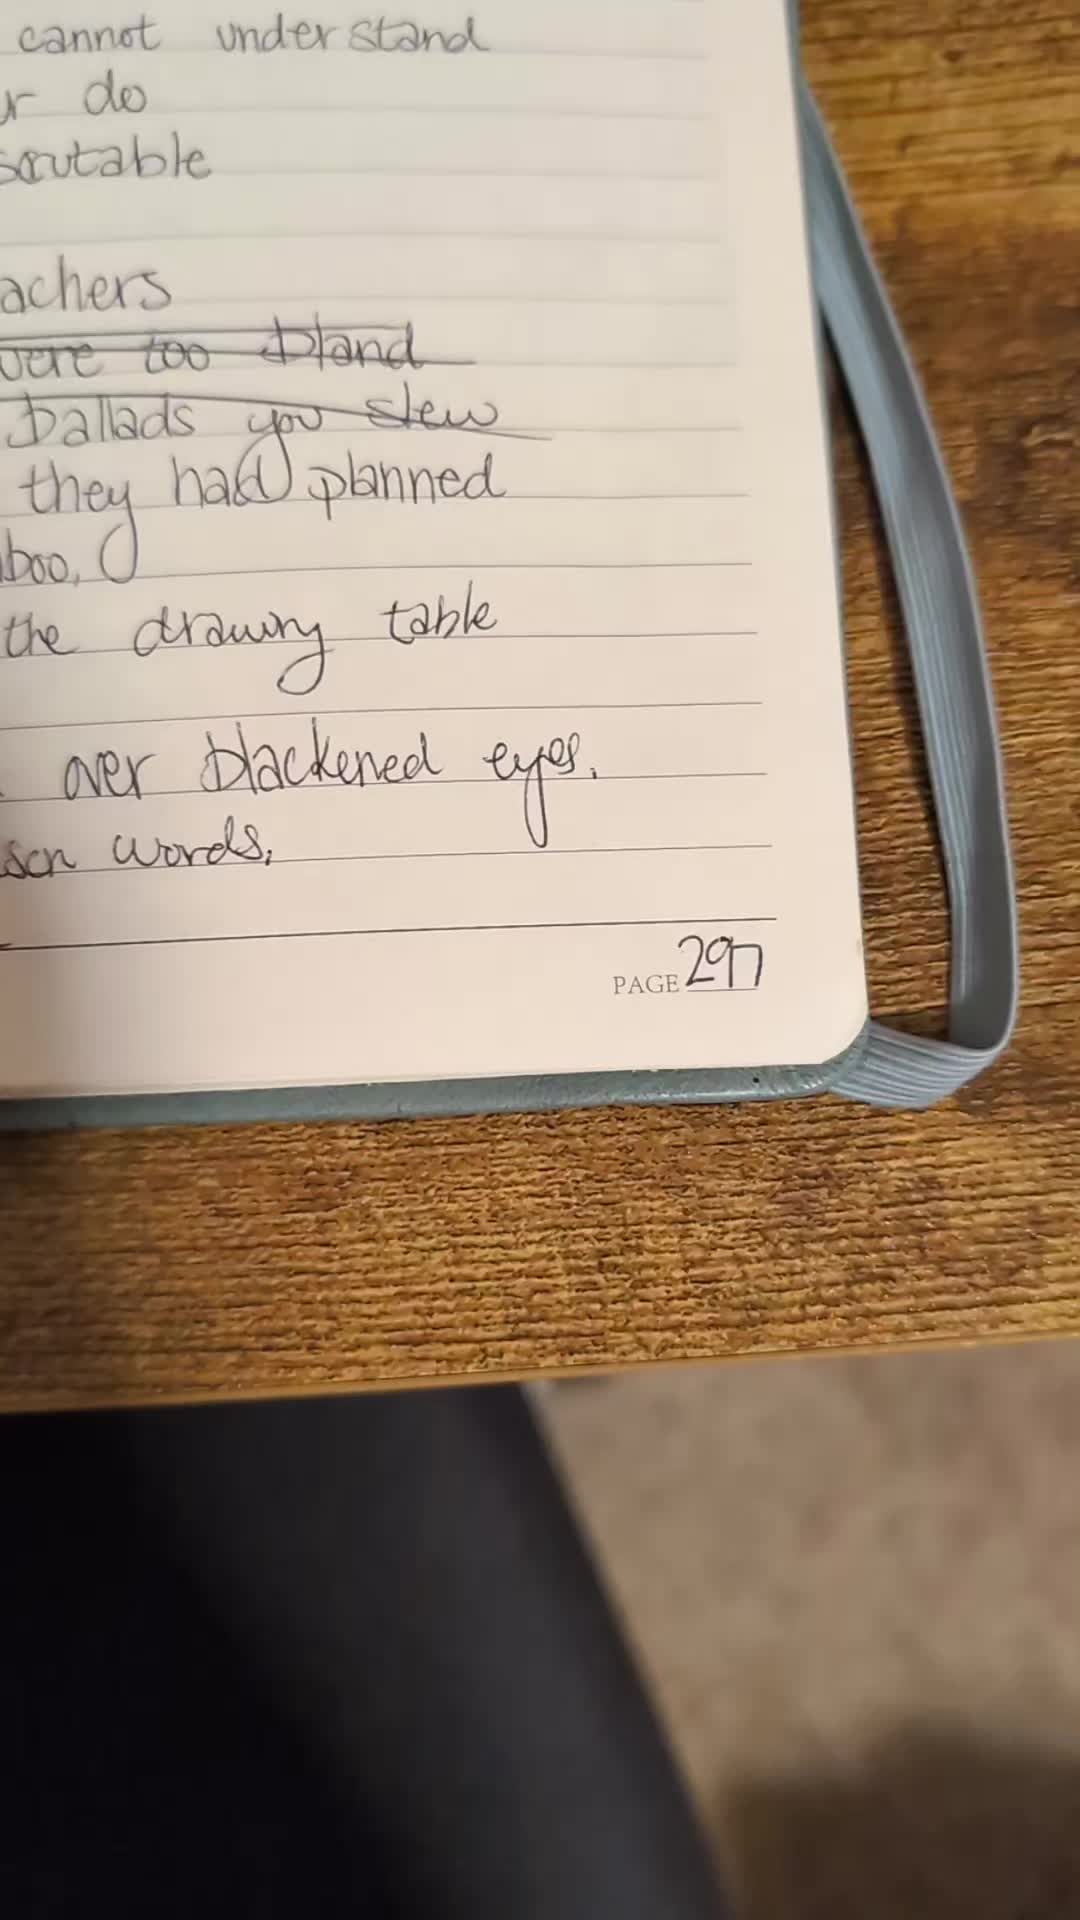 cannot understand
ur do
scrutable
achers
were too bland
ballads you slew
they had planned
boo,
the drawing table
over blackened eyes.
words,
PAGE 297